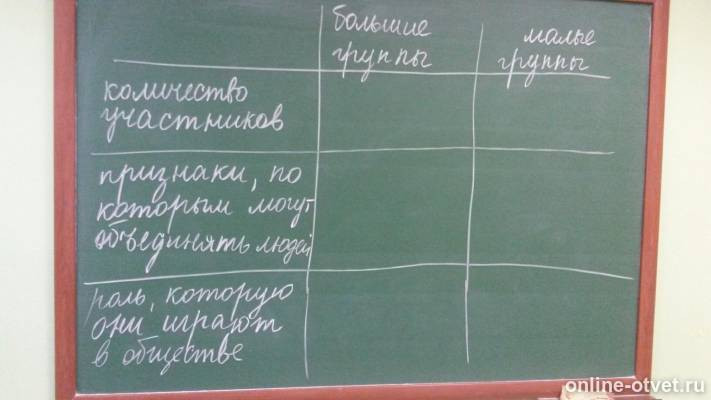 большие
группы
малые
группы
количество
участников
признаки, по
которым могут
объединять людей
роль, которую
они играют
в обществе
online-otvet.ru